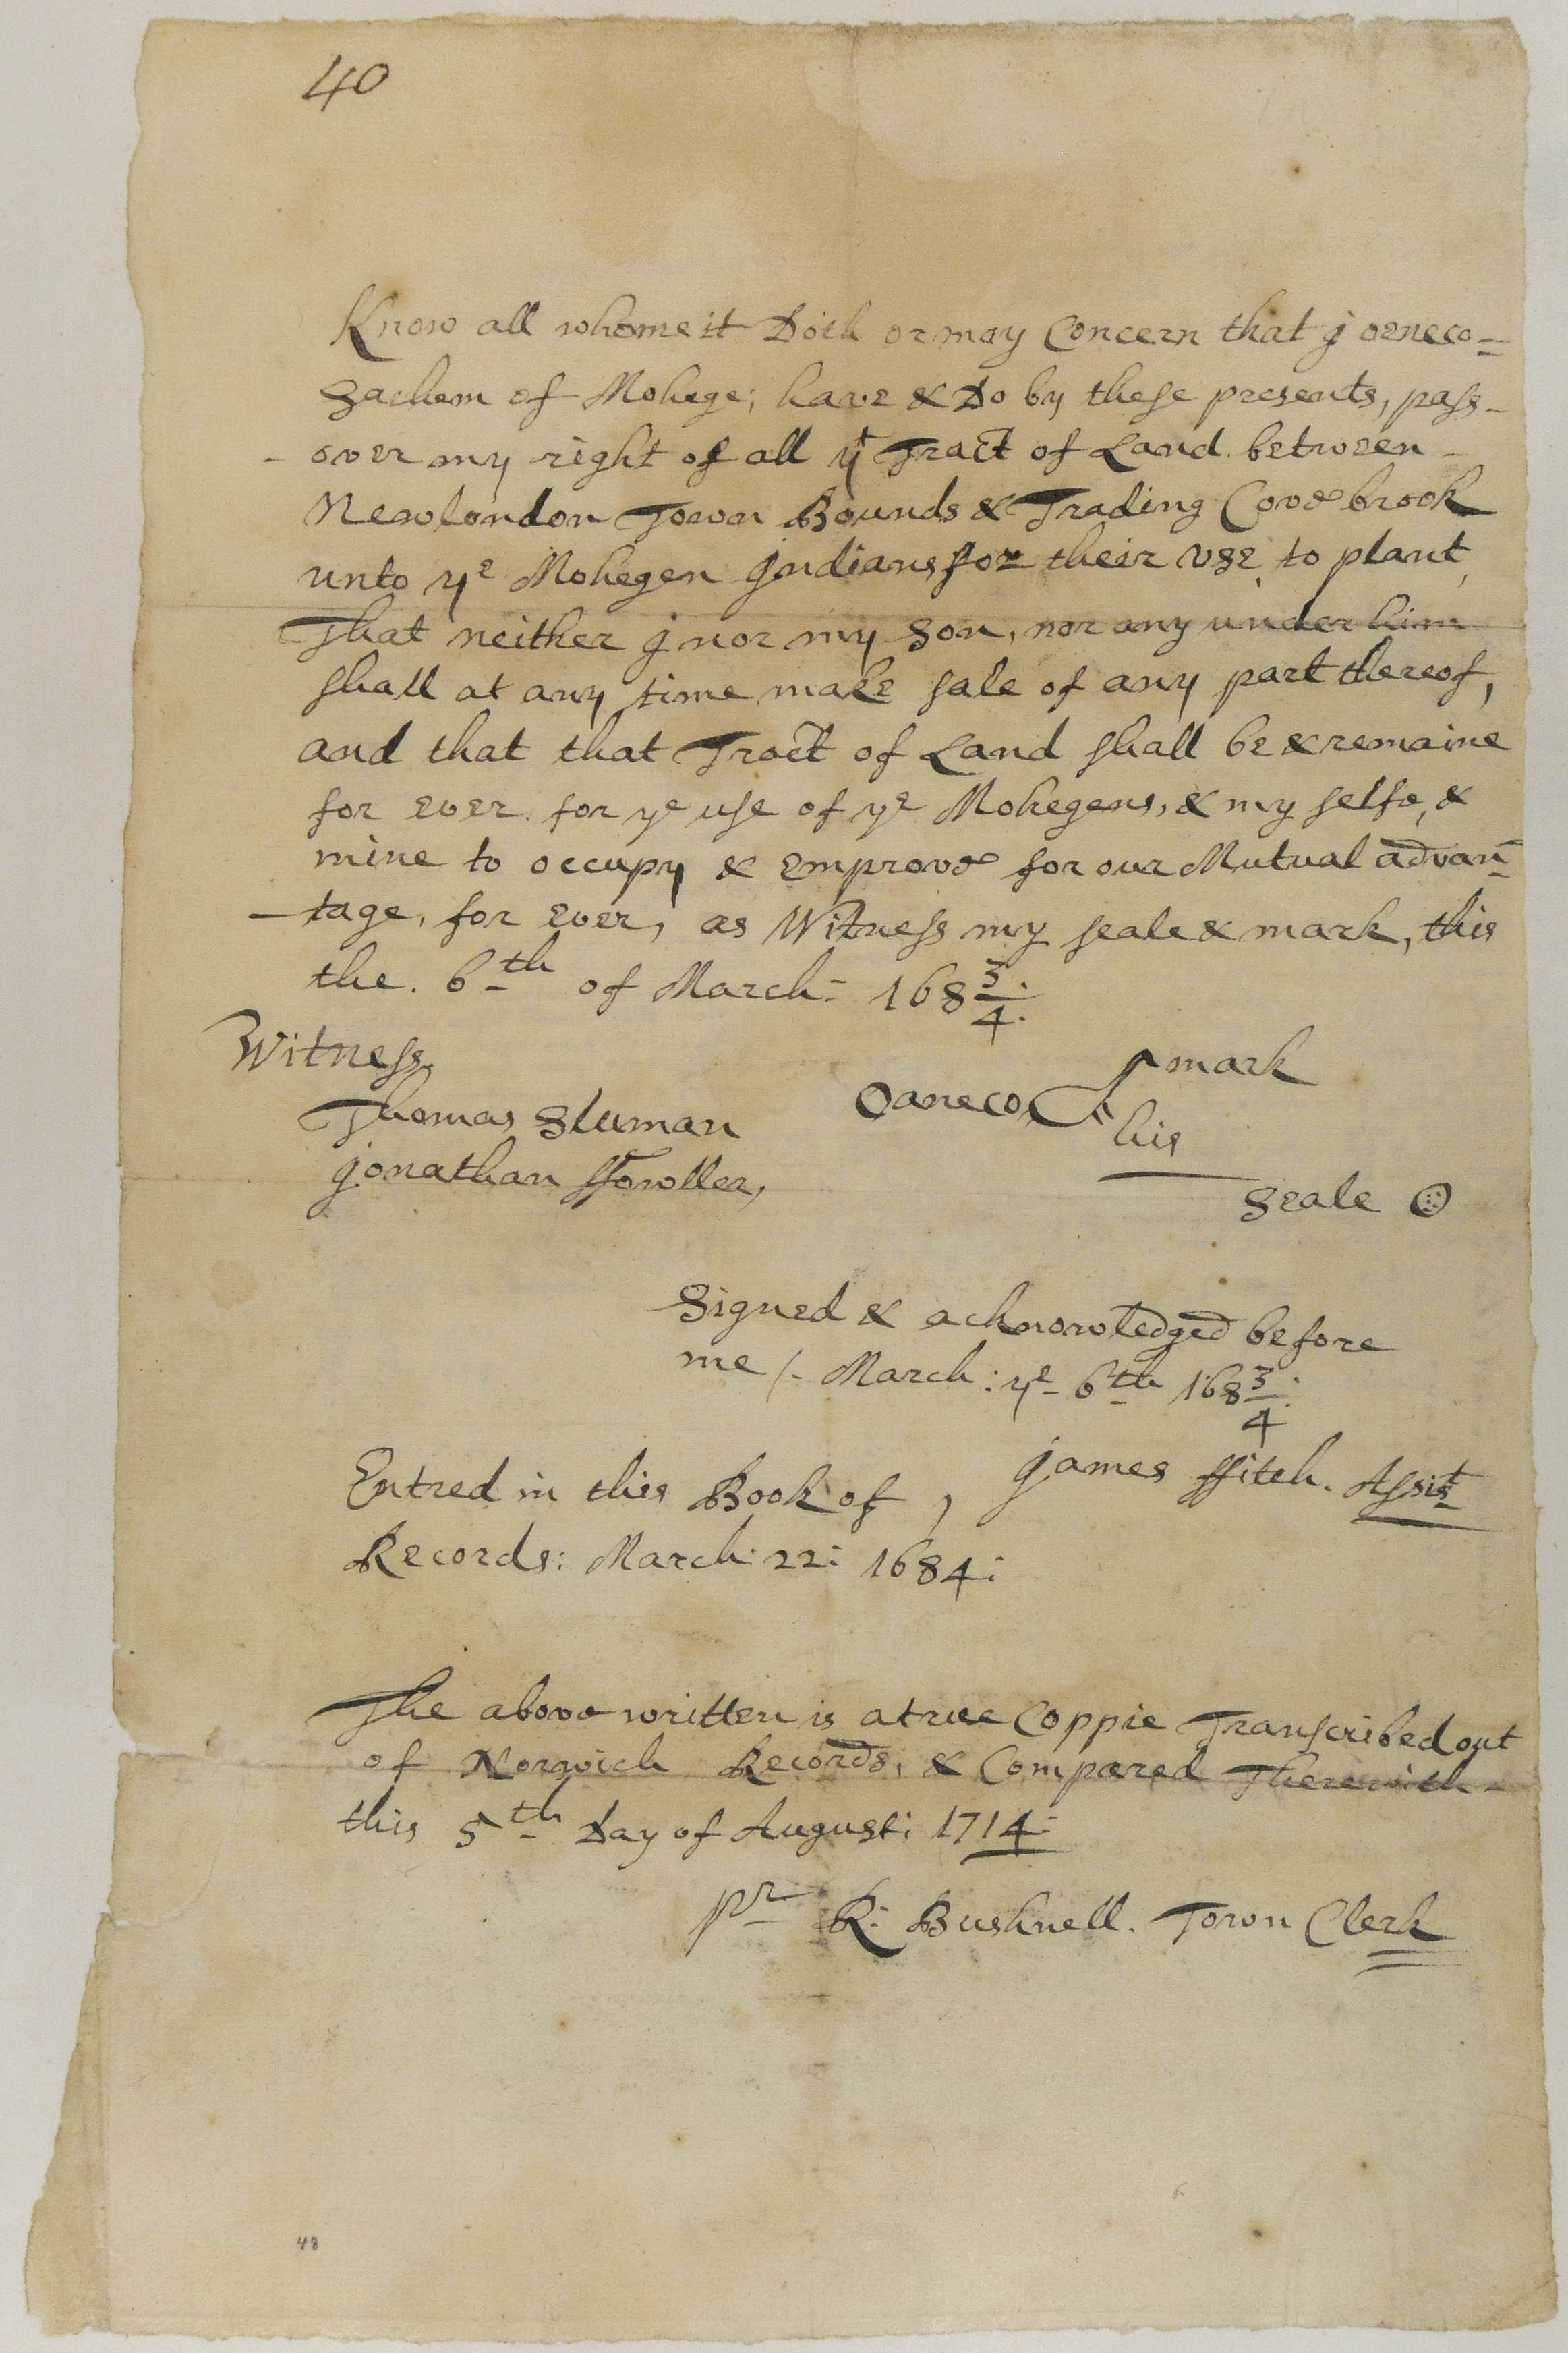 40
Know all whome it Doth or may Concern that j oeneco=
Sachem of Mohege; have & Do by these presents, pass-
-over my right of all yt Tract of Land between-
Newlondon Town Bounds & Trading Cove brook
unto ye Mohegen jndians for their use, to plant,
That neither j nor my Son, nor any under him
shall at any time make sale of any part thereof,
and that that Tract of Land shall be & remaine
for ever. for ye use of ye Mohegens, & my selfe, &
mine to occupy & emprove for our Mutual advan=
-tage, for ever, as Witness my seale & mark, this
the. 6th of March: 168 3/4:
Witness,
mark
Thomas Sluman Oaneco,
his
jonathan ffowller,
Seale
Signed & acknowledged before
me /- March: ye 6th 168 3/4:
james ffitch. Assist
Entred in this Book of,
Records: March: 22: 1684:
The above written is a true Coppie Transcribed out
of Norwich Records, & Compared Therewith-
this 5th Day of August: 1714:
pr R: Bushnell. Town Clerk
48